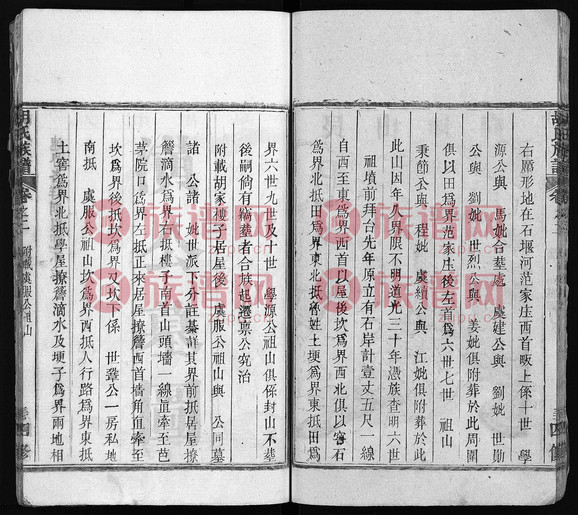 右願形地在石堰河范家庄西首畈上係十世 學
源公與 馬妣合塟處 虞建公與 劉妣 世勛
公與 劉妣 世烈公與 姜妣俱附葬於此周圍
俱以田爲界范家庄後左首爲六世七世 祖山
秉節公與 程妣 虞績公與 江妣俱附葬於此
此山因年久界限不明道光三十年憑族查明六世
祖墳前拜台先年原立有石岸計壹丈五尺一線
自西至東爲界西首以屋後坎爲界西北俱以窖石
爲界北抵田爲界東北抵魯姓土埂爲界東抵田爲
界六世九世及十世 學源公祖山俱係封山不塟
後嗣倘有犯塟者合族起遷稟公究治
附載胡家樓子居屋後 虞服公祖山與 公同墓
諸 公諸 妣世派下分註綦詳其界前抵居屋撩
簷滴水爲界右抵樓子南首山頭墻一線直牽至芭
茅院口爲界左抵正來居屋撩簷西首墻角直牽至
坎爲界後抵坎爲界又坎下係 世鞏公一房私地
南抵 虞服公祖山坎爲界西抵人行路爲界東抵
土窖爲界北抵學屋撩簷滴水及埂子爲界兩地相
胡氏族譜 卷之二 附載虞服公祖山
四修
族谱网